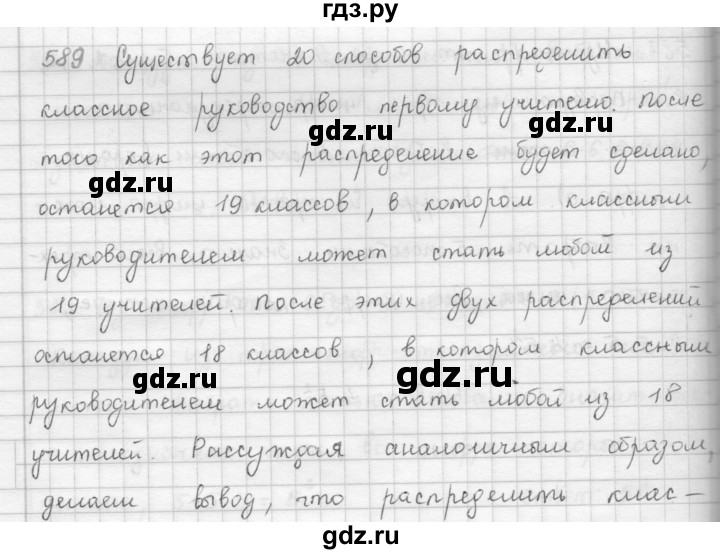 гдз.ру
589 Существует 20 способов распределить
классное руководство первому учителю. После
gdz.ru
gdz.ru
того как этот распределение будет сделано,
gdz.ru
останется 19 классов, в котором классным
руководителем может стать любой из
gdz.ru
gdz.ru
19 учителей. После этих двух распределений
останется 18 классов, в котором классным
gdz.ru
gdz.ru
руководителем может стать любой из 18
учителей. Рассуждая аналогичным образом,
gdz.ru
делаем вывод, что распределить клас-
gdz.ru
gdz.ru